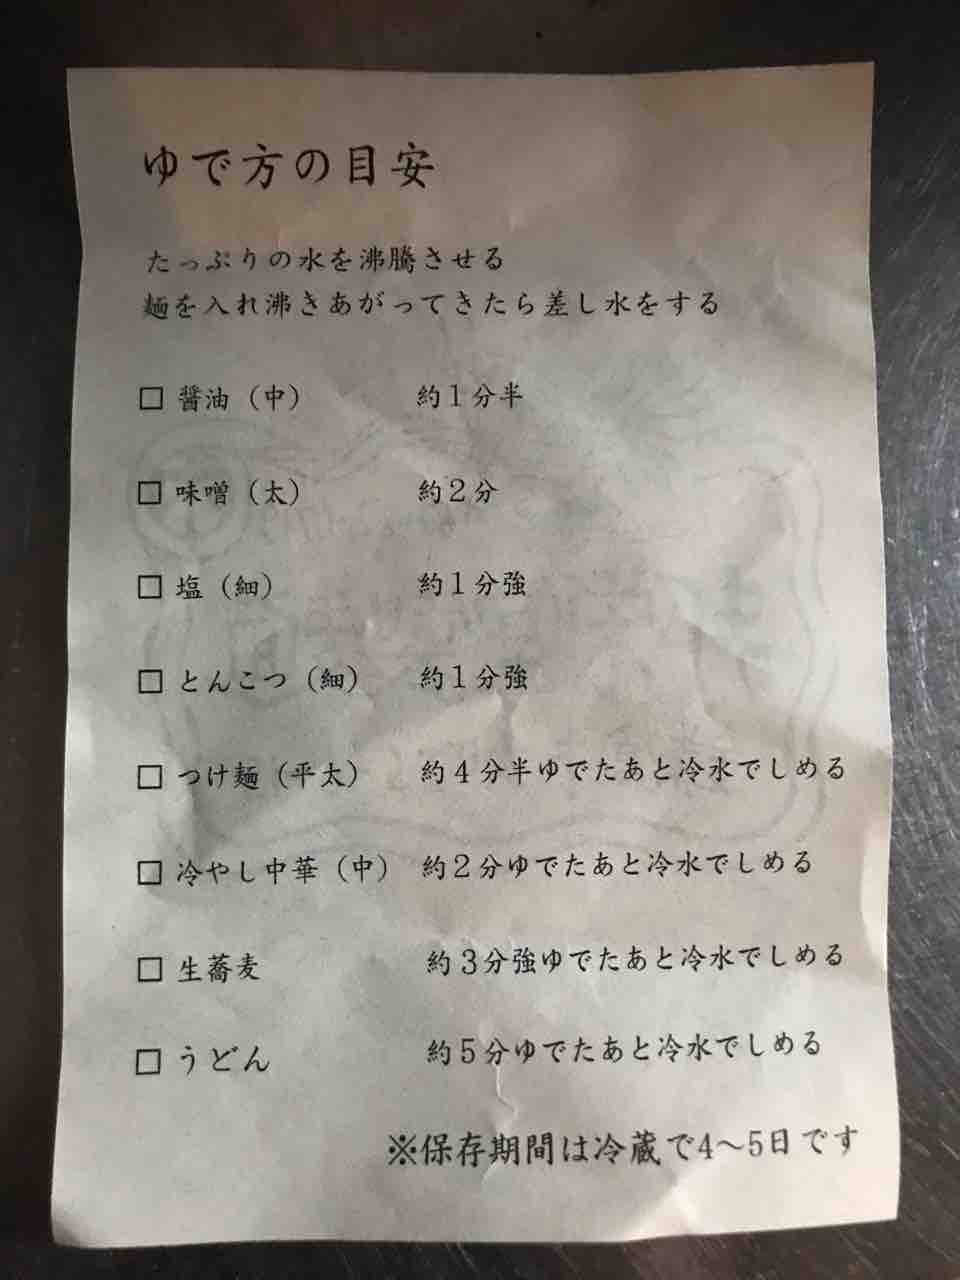 ゆで方の目安
たっぷりの水を沸騰させる
麺を入れ沸きあがってきたら差し水をする
□ 醤油（中） 約１分半
□ 味噌（太） 約２分
□ 塩（細） 約１分強
□ とんこつ（細） 約１分強
□ つけ麺（平太） 約４分半ゆでたあと冷水でしめる
□ 冷やし中華（中） 約２分ゆでたあと冷水でしめる
□ 生蕎麦 約３分強ゆでたあと冷水でしめる
□ うどん 約５分ゆでたあと冷水でしめる
※保存期間は冷蔵で4～5日です